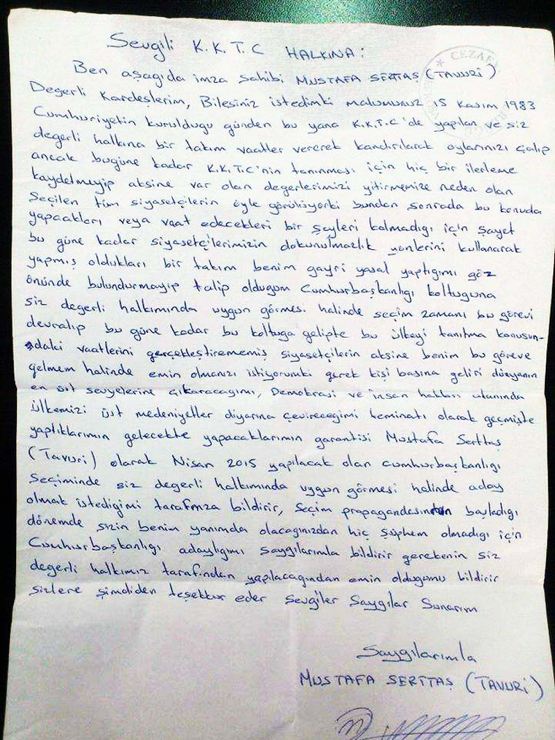 Sevgili K.K.T.C HALKINA:
CEZAE
Ben aşağıda imza sahibi MUSTAFA SERTTAŞ (TAVURİ)
Değerli Kardeşlerim, Bilesiniz istedimki malumunuz 15 KASIM 1983
Cumhuriyetin kurulduğu günden bu yana K.K.T.C'de yapılan ve siz
değerli halkına bir takım vaatler vererek kandırılarak oylarınızı çalıp
ancak bugüne kadar K.K.T.C'nin tanınması için hiç bir ilerleme
kaydetmeyip aksine var olan değerlerimizi yitirmenize neden olan
Seçilen tüm siyasetçilerin öyle görülüyorki bundan sonrada bu konuda
yapacakları veya vaat edecekleri bir şeyleri kalmadığı için şayet
bu güne kadar siyasetçilerimizin dokunulmazlık yönlerini kullanarak
yapmış oldukları bir takım benim gayri yasal yaptığımı göz
önünde bulundurmayıp talip olduğum Cumhurbaşkanlığı koltuğuna
siz değerli halkımında uygun görmesi halinde seçim zamanı bu görevi
devralıp bu güne kadar bu koltuğa gelipte bu ülkeyi tanıtma konusun-
daki vaatlerini gerçekleştirememiş siyasetçilerin aksine benim bu göreve
gelmem halinde emin olmanızı istiyorumki gerek kişi başına geliri dünyanın
en üst seviyelerine çıkaracağımı, Demokrasi ve insan hakları utanında
ülkemizi üst medeniyetler diyarına çevireceğimi teminatı olarak geçmişte
yaptıklarımın gelecekte yapacaklarımın garantisi Mustafa Serttaş
(Tavuri) olarak Nisan 2015 yapılacak olan cumhurbaşkanlığı
Seçiminde siz değerli halkımında uygun görmesi halinde aday
olmak istediğimi tarafınıza bildirir, Seçim propagandasının başladığı
dönemde sizin benim yanımda olacağınızdan hiç şüphem olmadığı için
Cumhurbaşkanlığı adaylığımı saygılarımla bildirir gerekenin siz
değerli halkımız tarafından yapılacağından emin olduğumu bildirir
sizlere şimdiden teşekkür eder Sevgiler Saygılar Sunarım
Saygılarımla
MUSTAFA SERTTAŞ (TAVURİ)